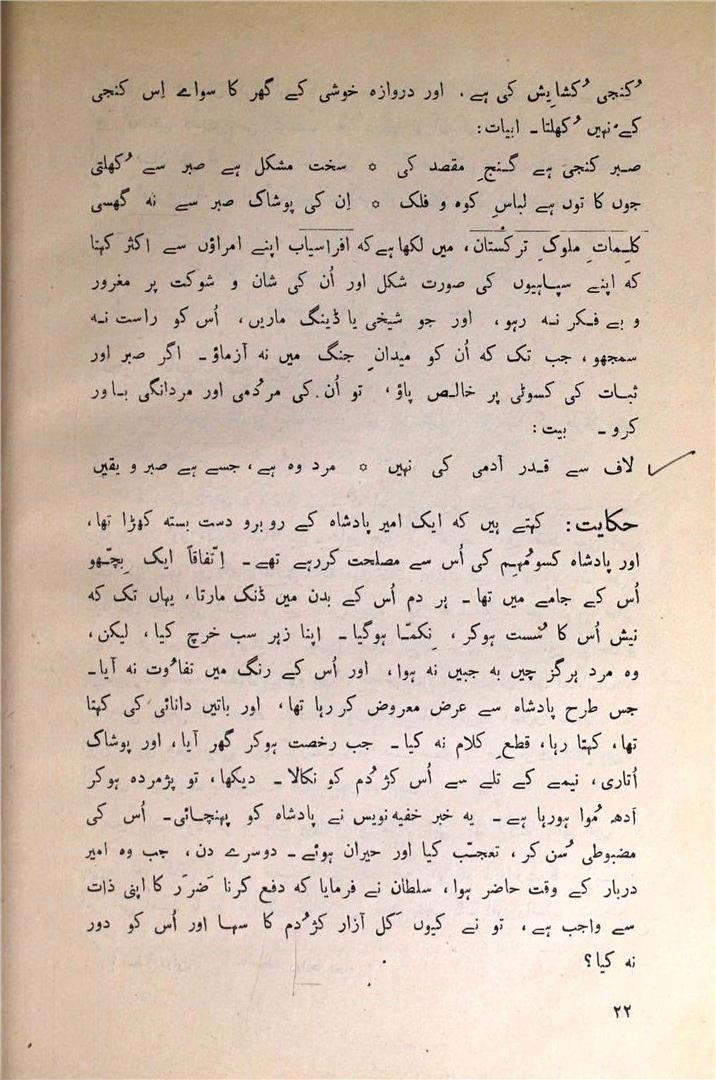 کُنجی کُشایِش کی ہے۔ اور دروازہ خوشی کے گھر کا سواے اِس کنجی
کے نہیں کُھلتا۔ ابیات:
صبر کنجی ہے گنجِ مقصد کی * سخت مشکل ہے صبر سے کُھلتی
جوں کا توں ہے لباسِ کوہ و فلک * اِن کی پوشاک صبر سے نہ گھسی
کلِماتِ ملوکِ ترکستان، میں لکھا ہے کہ افراسیاب اپنے امراؤں سے اکثر کہتا
کہ اپنے سپاہیوں کی صورت شکل اور اُن کی شان و شوکت پر مغرور
و بے فکر نہ رہو، اور جو شیخی یا ڈینگ ماریں، اُس کو راست نہ
سمجھو، جب تک کہ اُن کو میدانِ جنگ میں نہ آزماؤ۔ اگر صبر اور
ثبات کی کسوٹی پر خالص پاؤ، تو اُن کی مردُمی اور مردانگی باور
کرو۔ بیت:
لاف سے قدر آدمی کی نہیں * مرد وہ ہے، جسے ہے صبر و یقیں
حکایت: کہتے ہیں کہ ایک امیر پادشاہ کے روبرو دست بستہ کھڑا تھا،
اور پادشاہ کسو مُہِم کی اُس سے مصلحت کررہے تھے۔ اِتّفاقاً ایک بِچّھو
اُس کے جامے میں تھا۔ ہر دم اُس کے بدن میں ڈنک مارتا، یہاں تک کہ
نیش اُس کا سُست ہوکر، نِکمّا ہوگیا۔ اپنا زہر سب خرچ کیا، لیکن،
وہ مرد ہرگز چیں بہ جبیں نہ ہوا، اور اُس کے رنگ میں تفاوُت نہ آیا۔
جس طرح پادشاہ سے عرض معروض کر رہا تھا، اور باتیں دانائی کی کہتا
تھا، کہتا رہا، قطعِ کلام نہ کیا۔ جب رخصت ہوکر گھر آیا، اور پوشاک
اُتاری، نیمے کے تلے سے اُس کژدُم کو نکالا۔ دیکھا، تو پژمردہ ہوکر
اَدھ مُوا ہورہا ہے۔ یہ خبر خفیہ نویس نے پادشاہ کو پہنچائی۔ اُس کی
مضبوطی سُن کر، تعجّب کیا اور حیران ہوئے۔ دوسرے دن، جب وہ امیر
دربار کے وقت حاضر ہوا، سلطان نے فرمایا کہ دفع کرنا ضَرَر کا اپنی ذات
سے واجب ہے، تو نے کیوں کَل آزار کژدُم کا سہا اور اُس کو دور
نہ کیا؟
۲۲